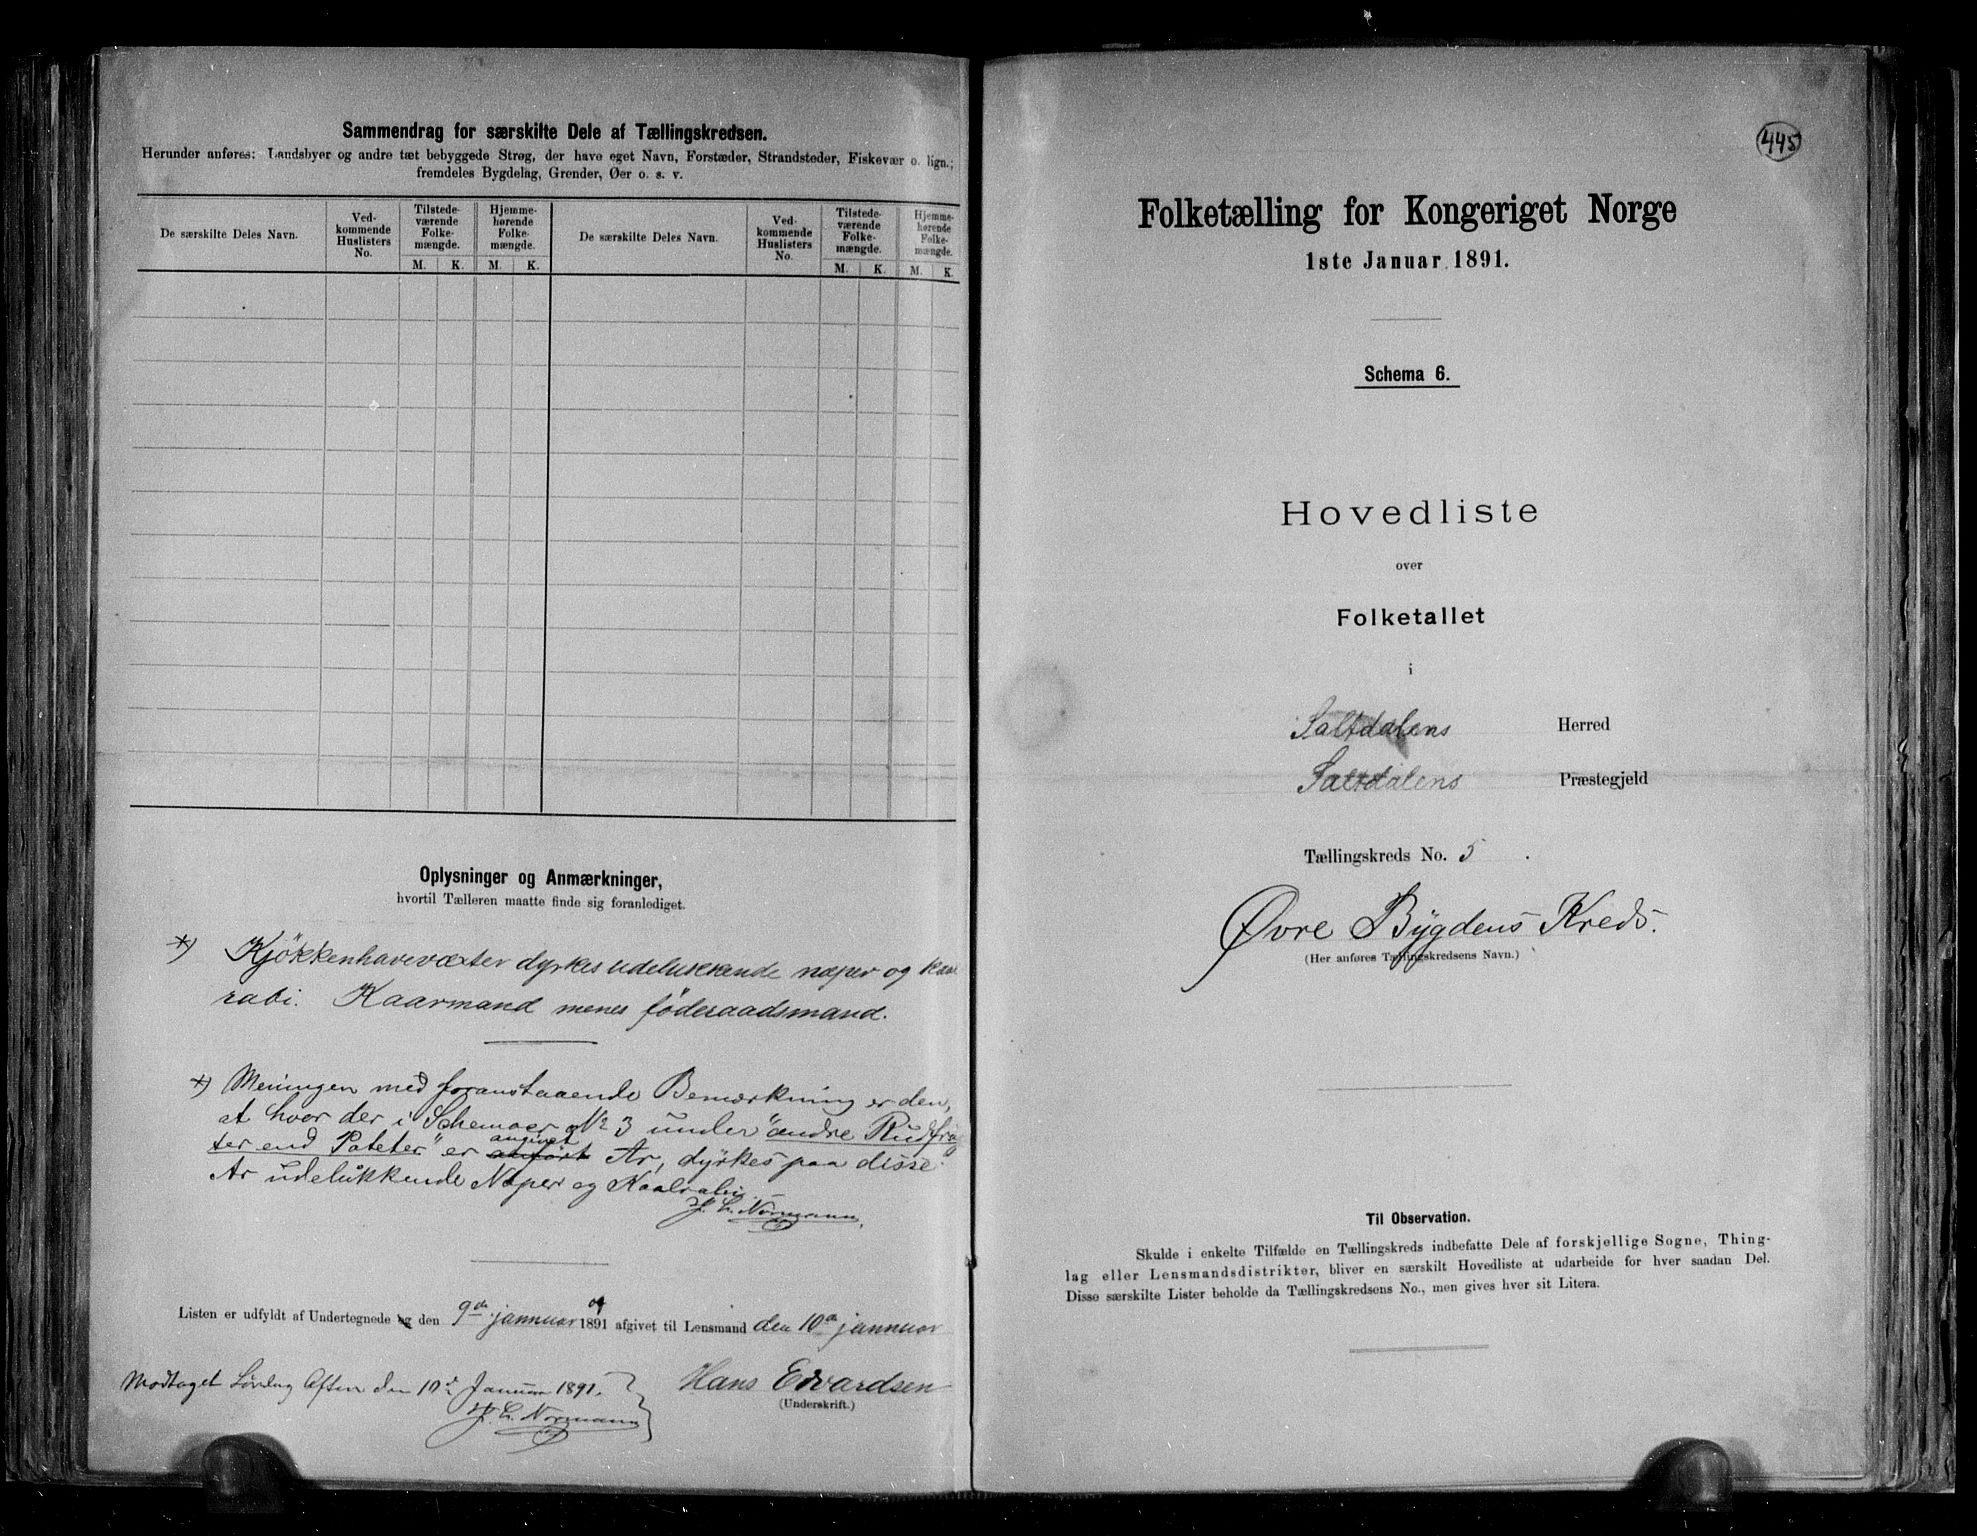 Sammendrag for særskilte Dele af Tællingskredsen.
Herunder anføres: Landsbyer og andre tæt bebyggede Strøg, der have eget Navn, Forstæder, Strandsteder, Fiskevær o. lign.;
fremdeles Bygdelag, Grender, Øer o. s. v.
De særskilte Deles Navn.
Ved-
kommende
Huslisters
No.
Tilstede-
værende
Folke-
mængde.
M. K.
Hjemme-
hørende
Folke-
mængde.
M. K.
De særskilte Deles Navn.
Ved-
kommende
Huslisters
No.
Tilstede-
værende
Folke-
mængde.
M. K.
Hjemme-
hørende
Folke-
mængde.
M. K.
Oplysninger og Anmærkninger,
hvortil Tælleren maatte finde sig foranlediget.
*) Kjökkenhavevæxter dyrkes udelukkende næper og kaa
rabi. Kaarmand menes föderaadsmand.
*) Meningen med foranstaaende Bemærkning er den,
at hvor der i Schemaer No 3 under "andre Rudfrug
ter end Poteter" er anført angivet Ar, dyrkes paa disse
Ar udelukkende Næper og Kaalrabi.
H. L. Normann.
Listen er udfyldt af Undertegnede og den 9de januar 1891 og afgivet til Lensmand den 10de januar
Modtaget Lördag Aften den 10de Januar 1891.
H. L. Normann
Hans Edvardsen
(Underskrift.)
445
Folketælling for Kongeriget Norge
1ste Januar 1891.
Schema 6.
Hovedliste
over
Folketallet
i
Saltdalens Herred
Saltdalens Præstegjeld
Tællingskreds No. 5.
Øvre Bygdens Kreds.
(Her anføres Tællingskredsens Navn.)
Til Observation.
Skulde i enkelte Tilfælde en Tællingskreds indbefatte Dele af forskjellige Sogne, Thing-
lag eller Lensmandsdistrikter, bliver en særskilt Hovedliste at udarbeide for hver saadan Del.
Disse særskilte Lister beholde da Tællingskredsens No., men gives hver sit Litera.